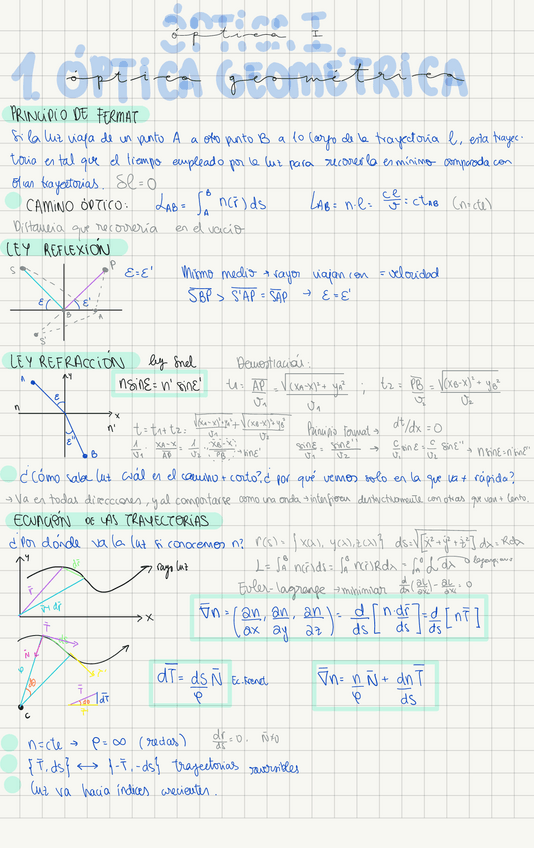 ÓPTICA I
óptica I
1. ÓPTICA GEOMÉTRICA
óptica geométrica
PRINCIPIO DE FERMAT
Si la luz viaja de un punto A a otro punto B a lo largo de la trayectoria l, esta trayec-
toria es tal que el tiempo empleado por la luz para recorrerla es mínimo comparada con
otras trayectorias. δl = 0
CAMINO ÓPTICO: L_AB = ∫_A^B n(r̄) ds L_AB = n·l = cl/v = c t_AB (n=cte)
Distancia que recorrería en el vacío
LEY REFLEXIÓN
S P ε = ε' Mismo medio → rayos viajan con = velocidad
ε ε' B A S' SBP > S'AP = SAP → ε = ε'
LEY REFRACCIÓN by Snel Demostración:
A y n sinε = n' sinε' t₁ = AP/v₁ = √((x-xA)²+yA²)/v₁ ; t₂ = PB/v₂ = √((xB-x)²+yB²)/v₂
n x n' ε ε'' B
t = t₁+t₂ = Principio Fermat → dt/dx = 0
→ n sinε = n' sinε''
¿Cómo sabe luz cuál es el camino + corto? ¿por qué vemos solo en la que va + rápido?
→ Va en todas direcciones, y al comportarse como una onda → interfieren destructivamente con otras que van + lento.
ECUACIÓN de LAS TRAYECTORIAS
¿Por dónde va la luz si conocemos n? r(s) = {x(λ), y(λ), z(λ)} ds = √[ẋ²+ẏ²+ż²] dλ = Rdλ
y rayo luz L = ∫_A^B n(r)ds = ∫_A^B n(r)Rdλ = ∫_A^B L dλ → Lagrangiano
r̄ r̄+dr̄ x Euler-Lagrange → minimizar
∇̄n = (∂n/∂x, ∂n/∂y, ∂n/∂z) = d/ds [n·dr̄/ds] = d/ds [nT̄]
T̄ N̄ ρ dθ C T̄ dT̄
dT̄ = ds/ρ N̄ Ec. Frenet ∇̄n = n/ρ N̄ + dn/ds T̄
n=cte → ρ = ∞ (rectas)
{T̄, ds} ↔ {-T̄, -ds} trayectorias reversibles
Luz va hacia índices crecientes.